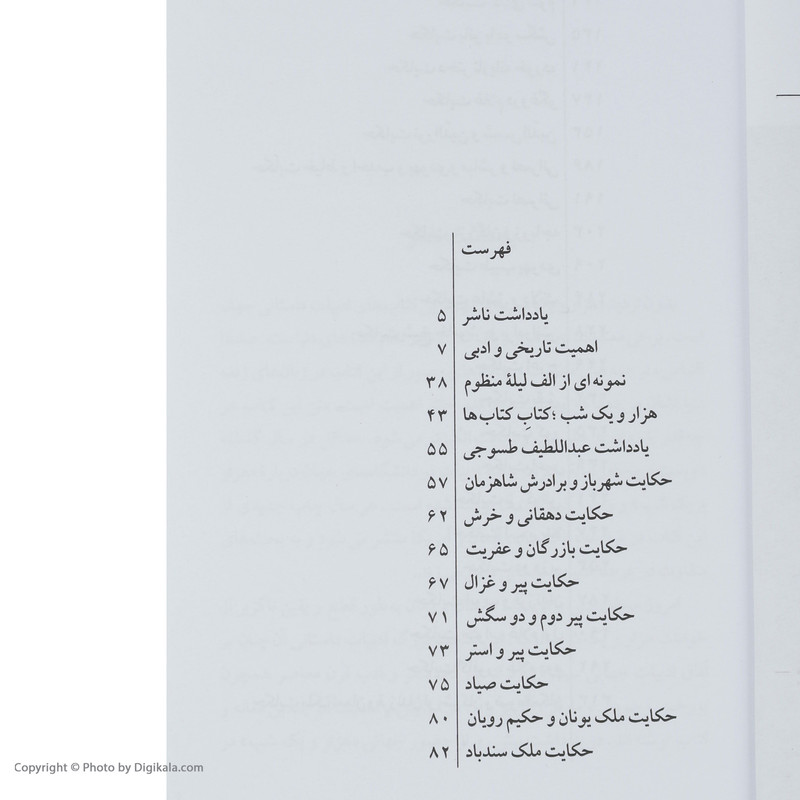 فهرست
یادداشت ناشر ۵
اهمیت تاریخی و ادبی ۷
نمونه‌ای از الف لیلهٔ منظوم ۳۸
هزار و یک شب ؛ کتابِ کتاب‌ها ۴۳
یادداشت عبداللطیف طسوجی ۵۵
حکایت شهرباز و برادرش شاهزمان ۵۷
حکایت دهقانی و خرش ۶۲
حکایت بازرگان و عفریت ۶۵
حکایت پیر و غزال ۶۷
حکایت پیر دوم و دو سگش ۷۱
حکایت پیر و استر ۷۳
حکایت صیاد ۷۵
حکایت ملک یونان و حکیم رویان ۸۰
حکایت ملک سندباد ۸۲
Copyright © Photo by Digikala.com